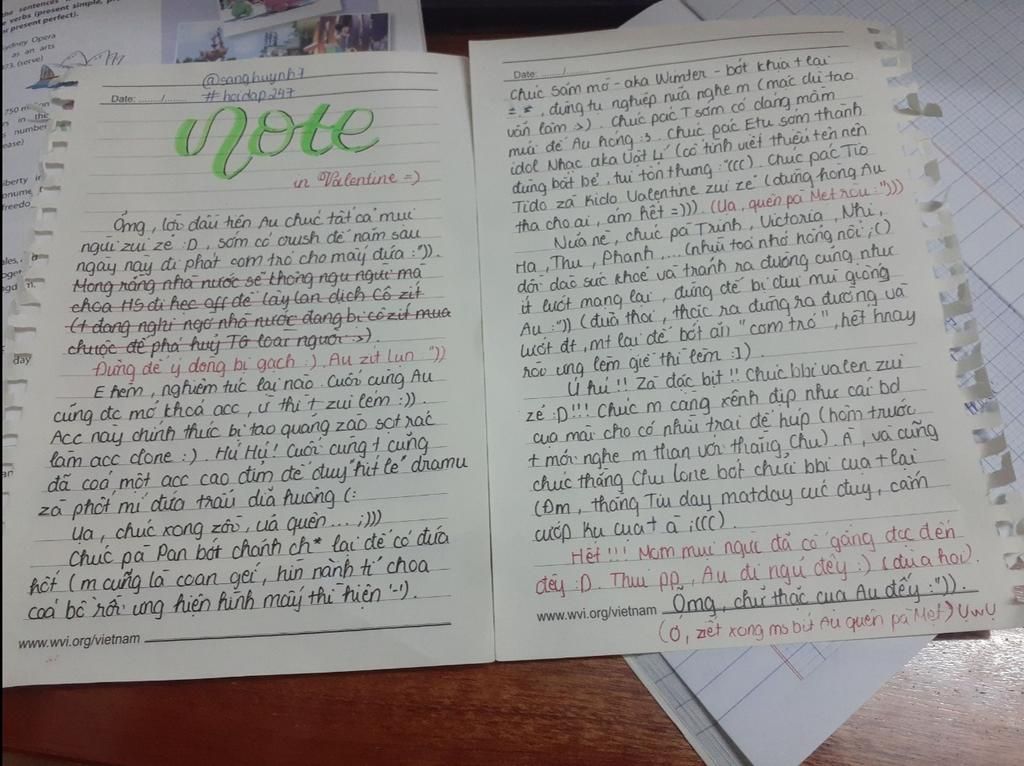 the sentences
e verbs (present simple, pr
r present perfect).
ydney Opera
as an arts
973. (serve)
750 million
in the
number
ease)
iberty i
onume
freedo
day
@sanghuynh7
Date: ....../...... #hoidap247
note
in Valentine =)
Ômg, lời đầu tiên Au chúc tất cả mụi
ngùi zui zẻ :D, sớm có crush để năm sau
ngày này đi phát cơm tró cho mấy đứa :")).
Mong rằng nhà nước sẽ thông ngu người mà
choa HS đi học off để lây lan dịch Cô zít
(t đang nghi ngờ nhà nước đang bị cô zít mua
chuộc để phá huỷ TG loài người :>)
Đừng để ý dòng bị gạch :). Au zít lụn "))
E hèm, nghiêm túc lại nào. Cuối cùng Au
cũng đc mở khoá acc, ù thì t zui lém :)).
Acc này chính thức bị tao quăng zào sọt rác
làm acc clone :). Hú Hú! Cuối cùng t cũng
đã coá một acc cao điểm để đuy hít le dramu
zà phốt mí đứa trẩu dià huông (:
Ụa, chúc xong zồi, uả quên ... ;)))
Chúc pà Pan bớt chảnh ch* lại để có đứa
hốt (m cũng là coan gei, hìn nành tí choa
coá bồ rồi ưng hiện hình mấy thì hiện '-').
www.wvi.org/vietnam
Date: ....../......
Chúc sắm mớ - aka Wimter - bớt khùa t lại
=.*, đừng tụ nghiệp nữa nghe m (mặc dù tao
vẫn làm :>). Chúc pác T sớm có dáng mẫm
múi để Au hóng :3. Chúc pác Etu sớm thành
idol Nhạc aka Vật Lí (cố tình viết thiếu tên nên
đừng bắt bẻ, tui tổn thưng :"(((). Chúc pác Tio
Tido zà Kido Valentine zui zẻ (đừng hong Au
tha cho ai, ám hết =))). (Ụa, quên pà Mẹt ròu :")))
Nữa nè, chúc pà Trinh, Victoria, Nhi,
Ha, Thu, Phanh .... (nhìu toá nhớ hỏng nổi ;()
dồi dào sức khoẻ và tránh ra đường cũng như
ít lướt mạng lại, đừng để bị đui mù giống
Au :")) (đùa thoi, thức ra đừng ra đường và
lướt đt, mt lại để bớt ăn "cơm tró", hết hnay
rồi ưng lèm giề thì lèm :])
Ú hú!! Zà đặc bịt!! Chúc bbi valen zui
zẻ :D!!! Chúc m càng xênh địp như cái bd
cuả mài cho có nhìu trai để húp (hôm trước
t mới nghe m than vời thằng Chu). À, và cũng
chúc thằng Chu lone bớt chửi bbi của t lại
(Đm, thằng Tiu day matday cực đuy, cấm
cướp ku cua t à ;(((). 
Hết!!! Mơm mụi ngừi đã cố gắng đọc đến
đêy :D. Thui pp, Au đi ngủ đêy :) (đùa hoi).
www.wvi.org/vietnam Ômg, chữ thạc của Au đếy :")).
(Ó, ziết xong ms bít Au quên pà Mẹt) UwU